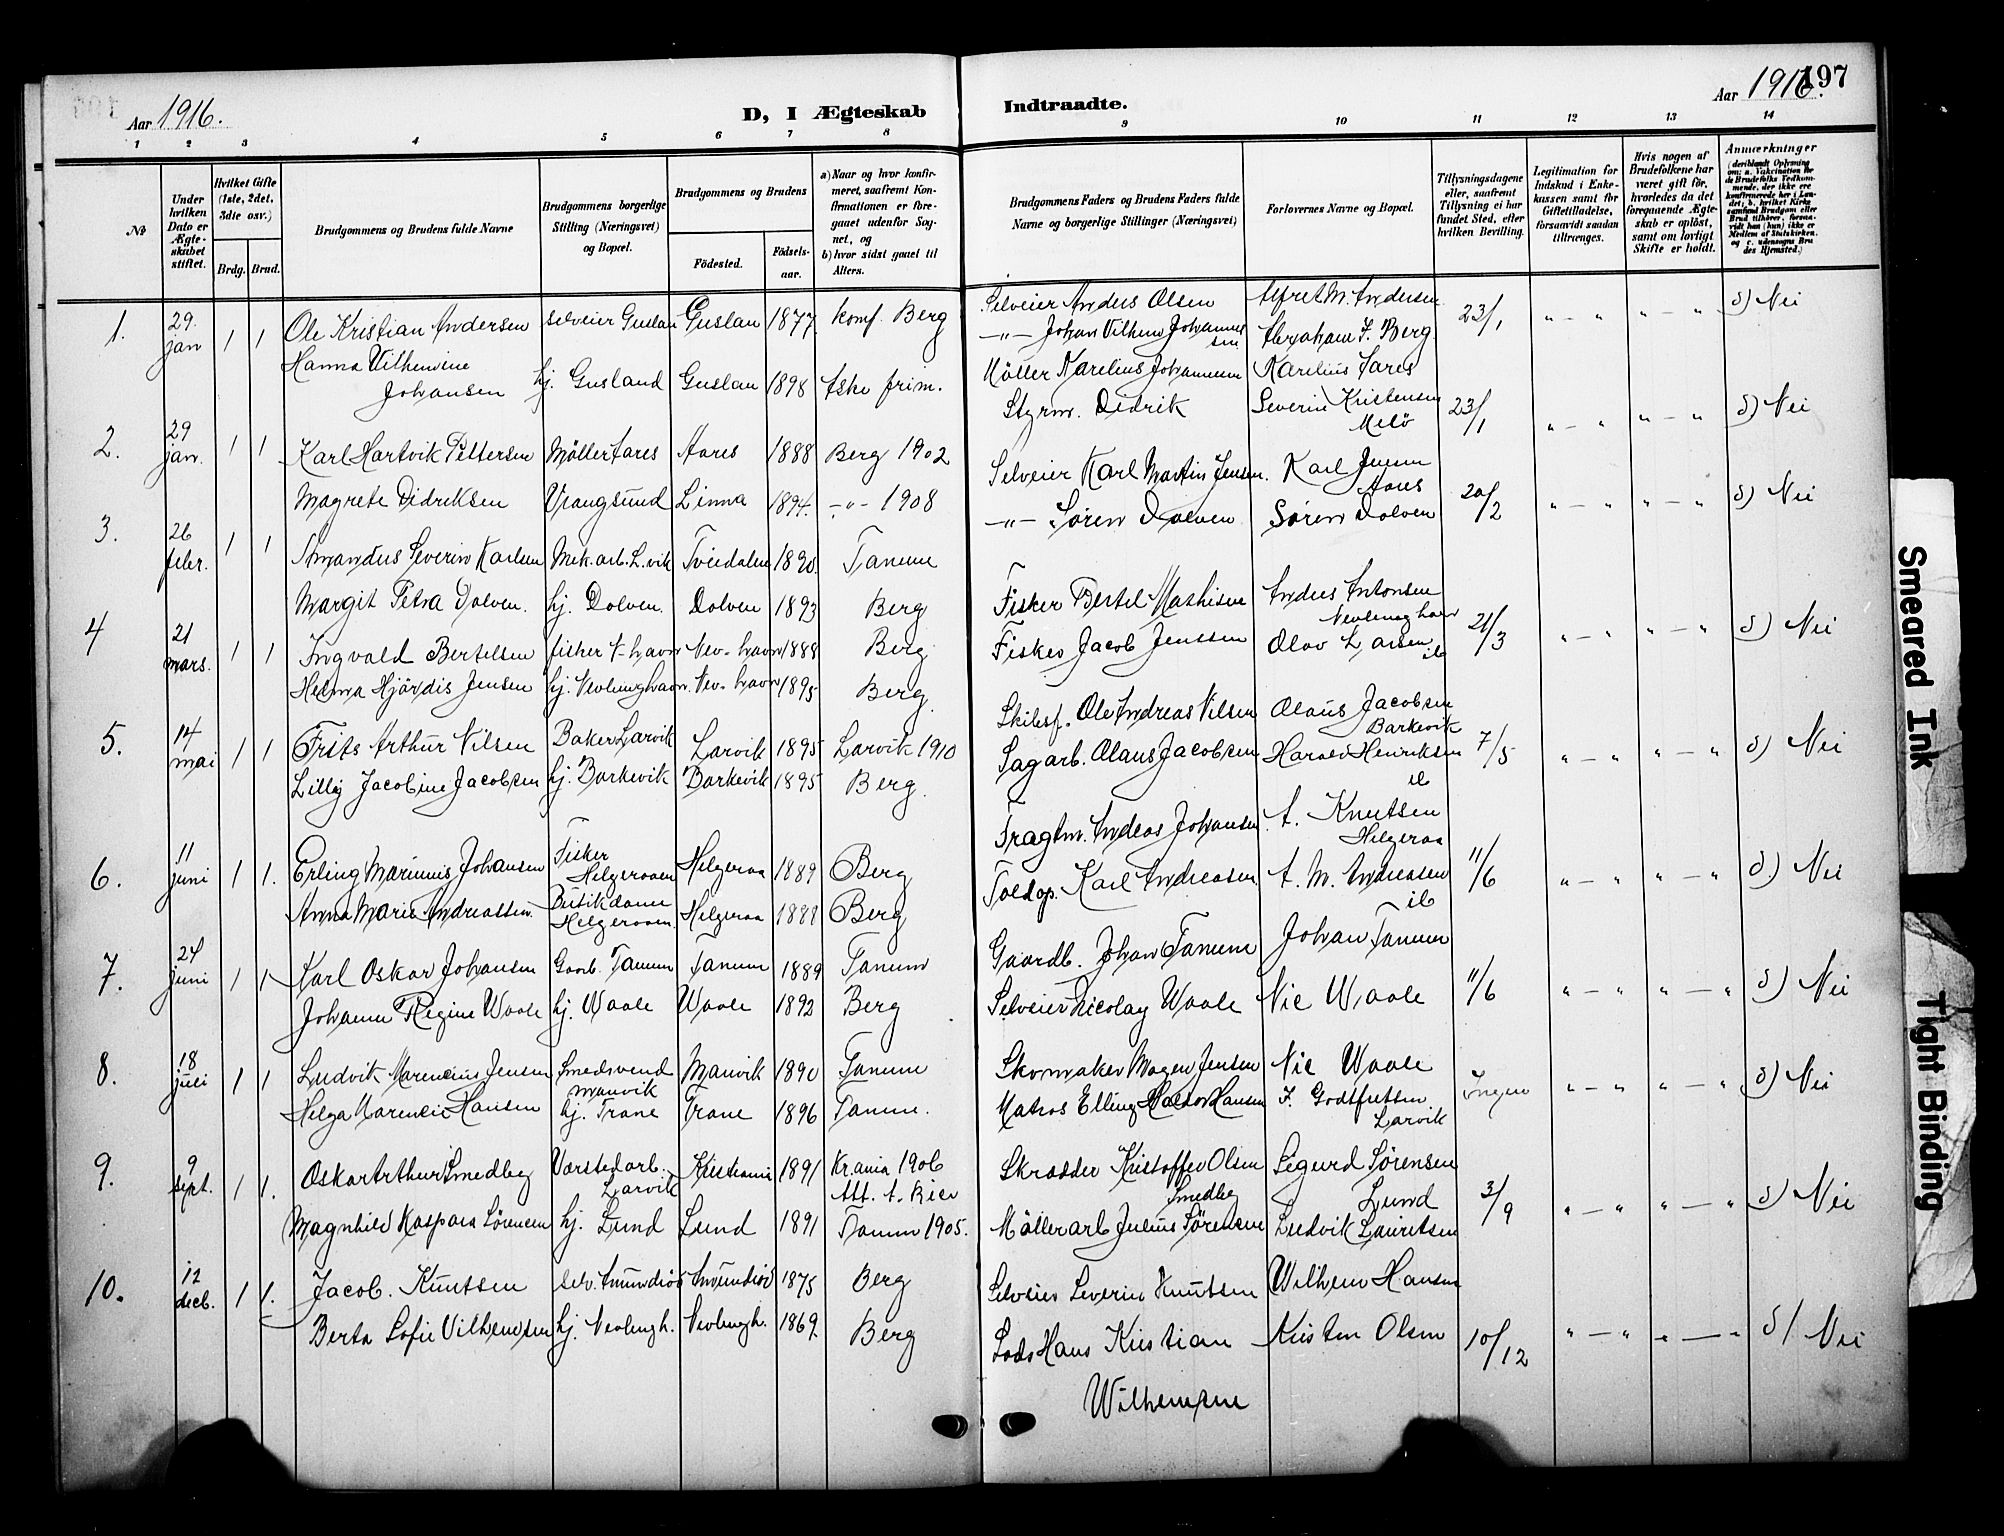 Aar 1916.
D, I Ægteskab Indtraadte.
Aar 1916.
197
1 2 3 4 5 6 7 8 9 10 11 12 13 14
No
Under hvilken Dato er Ægteskabet stiftet.
Hvilket Gifte (1ste, 2det, 3die osv.)
Brdg. Brud.
Brudgommens og Brudens fulde Navne
Brudgommens borgerlige Stilling (Næringsvei) og Bopæl.
Brudgommens og Brudens
Fødested.
Fødselsaar.
a) Naar og hvor konfirmeret, saafremt Konfirmationen er foregaaet udenfor Sognet, og
b) hvor sidst gaaet til Alters.
Brudgommens Faders og Brudens Faders fulde Navne og borgerlige Stillinger (Næringsvei)
Forlovernes Navne og Bopæl.
Tillysningsdagene eller, saafremt Tillysning ei har fundet Sted, efter hvilken Bevilling.
Legitimation for Indskud i Enkekassen samt for Giftetilladelse, forsaavidt saadan tiltrænges.
Hvis nogen af Brudefolkene har været gift før, hvorledes da det foregaaende Ægteskab er opløst, samt om lovligt Skifte er holdt.
Anmærkninger
1. 29. jan 1 1 Ole Kristian Andersen selveier Guslan Guslan 1877 Konf. Berg Selveier Anders Olsen Alfret M. Andersen 23/1 " — " " — " d) Nei
Hanna Vilhemine Johansen hj. Gusland Guslan 1898 Aske frim. —"— Johan Vilhem Johannessen Abraham F. Berg
2. 29 jan. 1 1 Karl Hartvik Pettersen Møller Aares Aares 1888 Berg 1902 Møller Karelius Johannesen Karelius Aares 23/1 " — " " — " d) Nei
Magrete Didriksen Vrangsund Linna 1894. —"— 1908 Styrm. Didrik Severin Kristensen Melø
3. 26 febr. 1 1 Amandus Severin Karlsen Mek. arb. L.vik Tveidalen 1890. Tanum Selveier Karl Martin Jensen. Karl Jensen Aares 20/2 " — " " — " d) Nei
Margit Petra Dolven. hj. Dolven. Dolven 1893 Berg —"— Søren Dolven Søren Dolven
4 21 mars. 1 1 Ingvald Bertelsen fisker N-havn Nev-havn 1888 Berg Fisker Bertel Mathisen Anders Antonsen Nevlunghavn 21/3 " — " " — " d) Nei
Helma Hjørdis Jensen hj. Nevlunghavn. Nev-havn 1895 Berg Fisker Jacob Jenssen Olov Larsen ib
5. 14 mai 1 1 Frits Arthur Nilsen Baker Larvik Larvik 1895 Larvik 1910 Skibsf. Ole Andreas Nilsen Olaus Jacobsen Barkevik 7/5 " — " " — " d) Nei
Lilly Jacobine Jacobsen hj. Barkevik Barkevik 1895 Berg. Sagarb. Olaus Jacobsen Harald Henriksen ib
6. 11 juni 1 1. Erling Marinius Johansen Fisker Helgeroaen Helgeroa 1889 Berg Fragtm. Andreas Johansen A. Knutsen Helgeroa 11/6 " — " " — " d) Nei
Anna Marie Andreassen. Butikdame Helgeroaen Helgeroa 1888 Berg Toldop. Karl Andreasen A. M. Andreasen ib
7. 24 juni 1 1 Karl Oskar Johansen Gaarb. Tanum Tanum 1889 Tanum Gaardb. Johan Tanum Johan Tanum 11/6 " — " " — " d) Nei
Johanne Regine Waale hj. Waale Waale 1892 Berg Selveier Nicolay Waale Nic Waale
8. 18 juli 1 1 Ludvik Marencius Jensen Smedsvend Manvik Manvik 1890 Tanum Skomaker Mogen Jensen Nic Waale Ingen " — " " — " d) Nei
Helga Marencie Hansen hj. Trane Trane 1896 Tanum. Matros Elling Haldor Hansen F. Godtfretsen Larvik
9. 9 sept. 1 1. Oskar Arthur Smedbeg Værstedarb. Larvik Kristiania 1891 Kr.ania 1906 Att. A. Bier Skrædder Kristoffer Olsen Smedbeg Sigurd Sørensen Lund 3/9 " — " " — " d) Nei
Magnhild Kaspara Sørensen hj. Lund Lund 1891 Tanum 1905. Møllerarb Julius Sørensen Ludvik Lauritsen
10. 12 decb. 1 1. Jacob. Knutsen selv. Amundrød Amundrød 1875 Berg Selveier Severin Knutsen Wilhem Hansen 10/12 " — " " — " d) Nei
Berta Sofie Vilhemsen hj. Nevlungh. Nevlungh. 1869. Berg Lods Hans Kristian Wilhemsen Kristen Olsen
Smeared Ink
Tight Binding